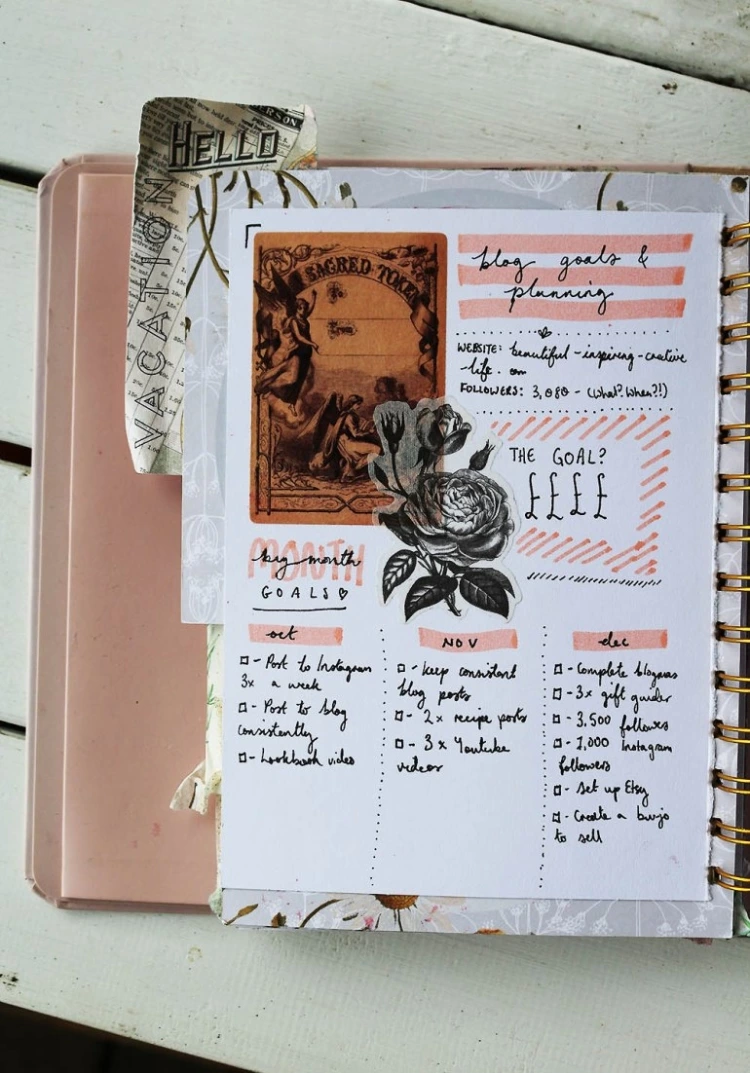 HELLO
VACATION
SACRED TOKEN
To
From
blog goals &
planning
WEBSITE: beautiful-inspiring-creative
-life.com
FOLLOWERS: 3,080 - (What? When?!)
THE GOAL?
££££
MONTH
big month
GOALS
oct
□ - Post to Instagram
3x a week
□ - Post to blog
consistently
□ - Lookbook video
NOV
□ - keep consistent
blog posts
□ - 2x recipe posts
□ - 3x Youtube
videos
dec
□ - Complete blogmas
□ - 3x gift guides
□ - 3,500 followers
□ - 1,000 Instagram
followers
□ - Set up Etsy
□ - Create a bujo
to sell